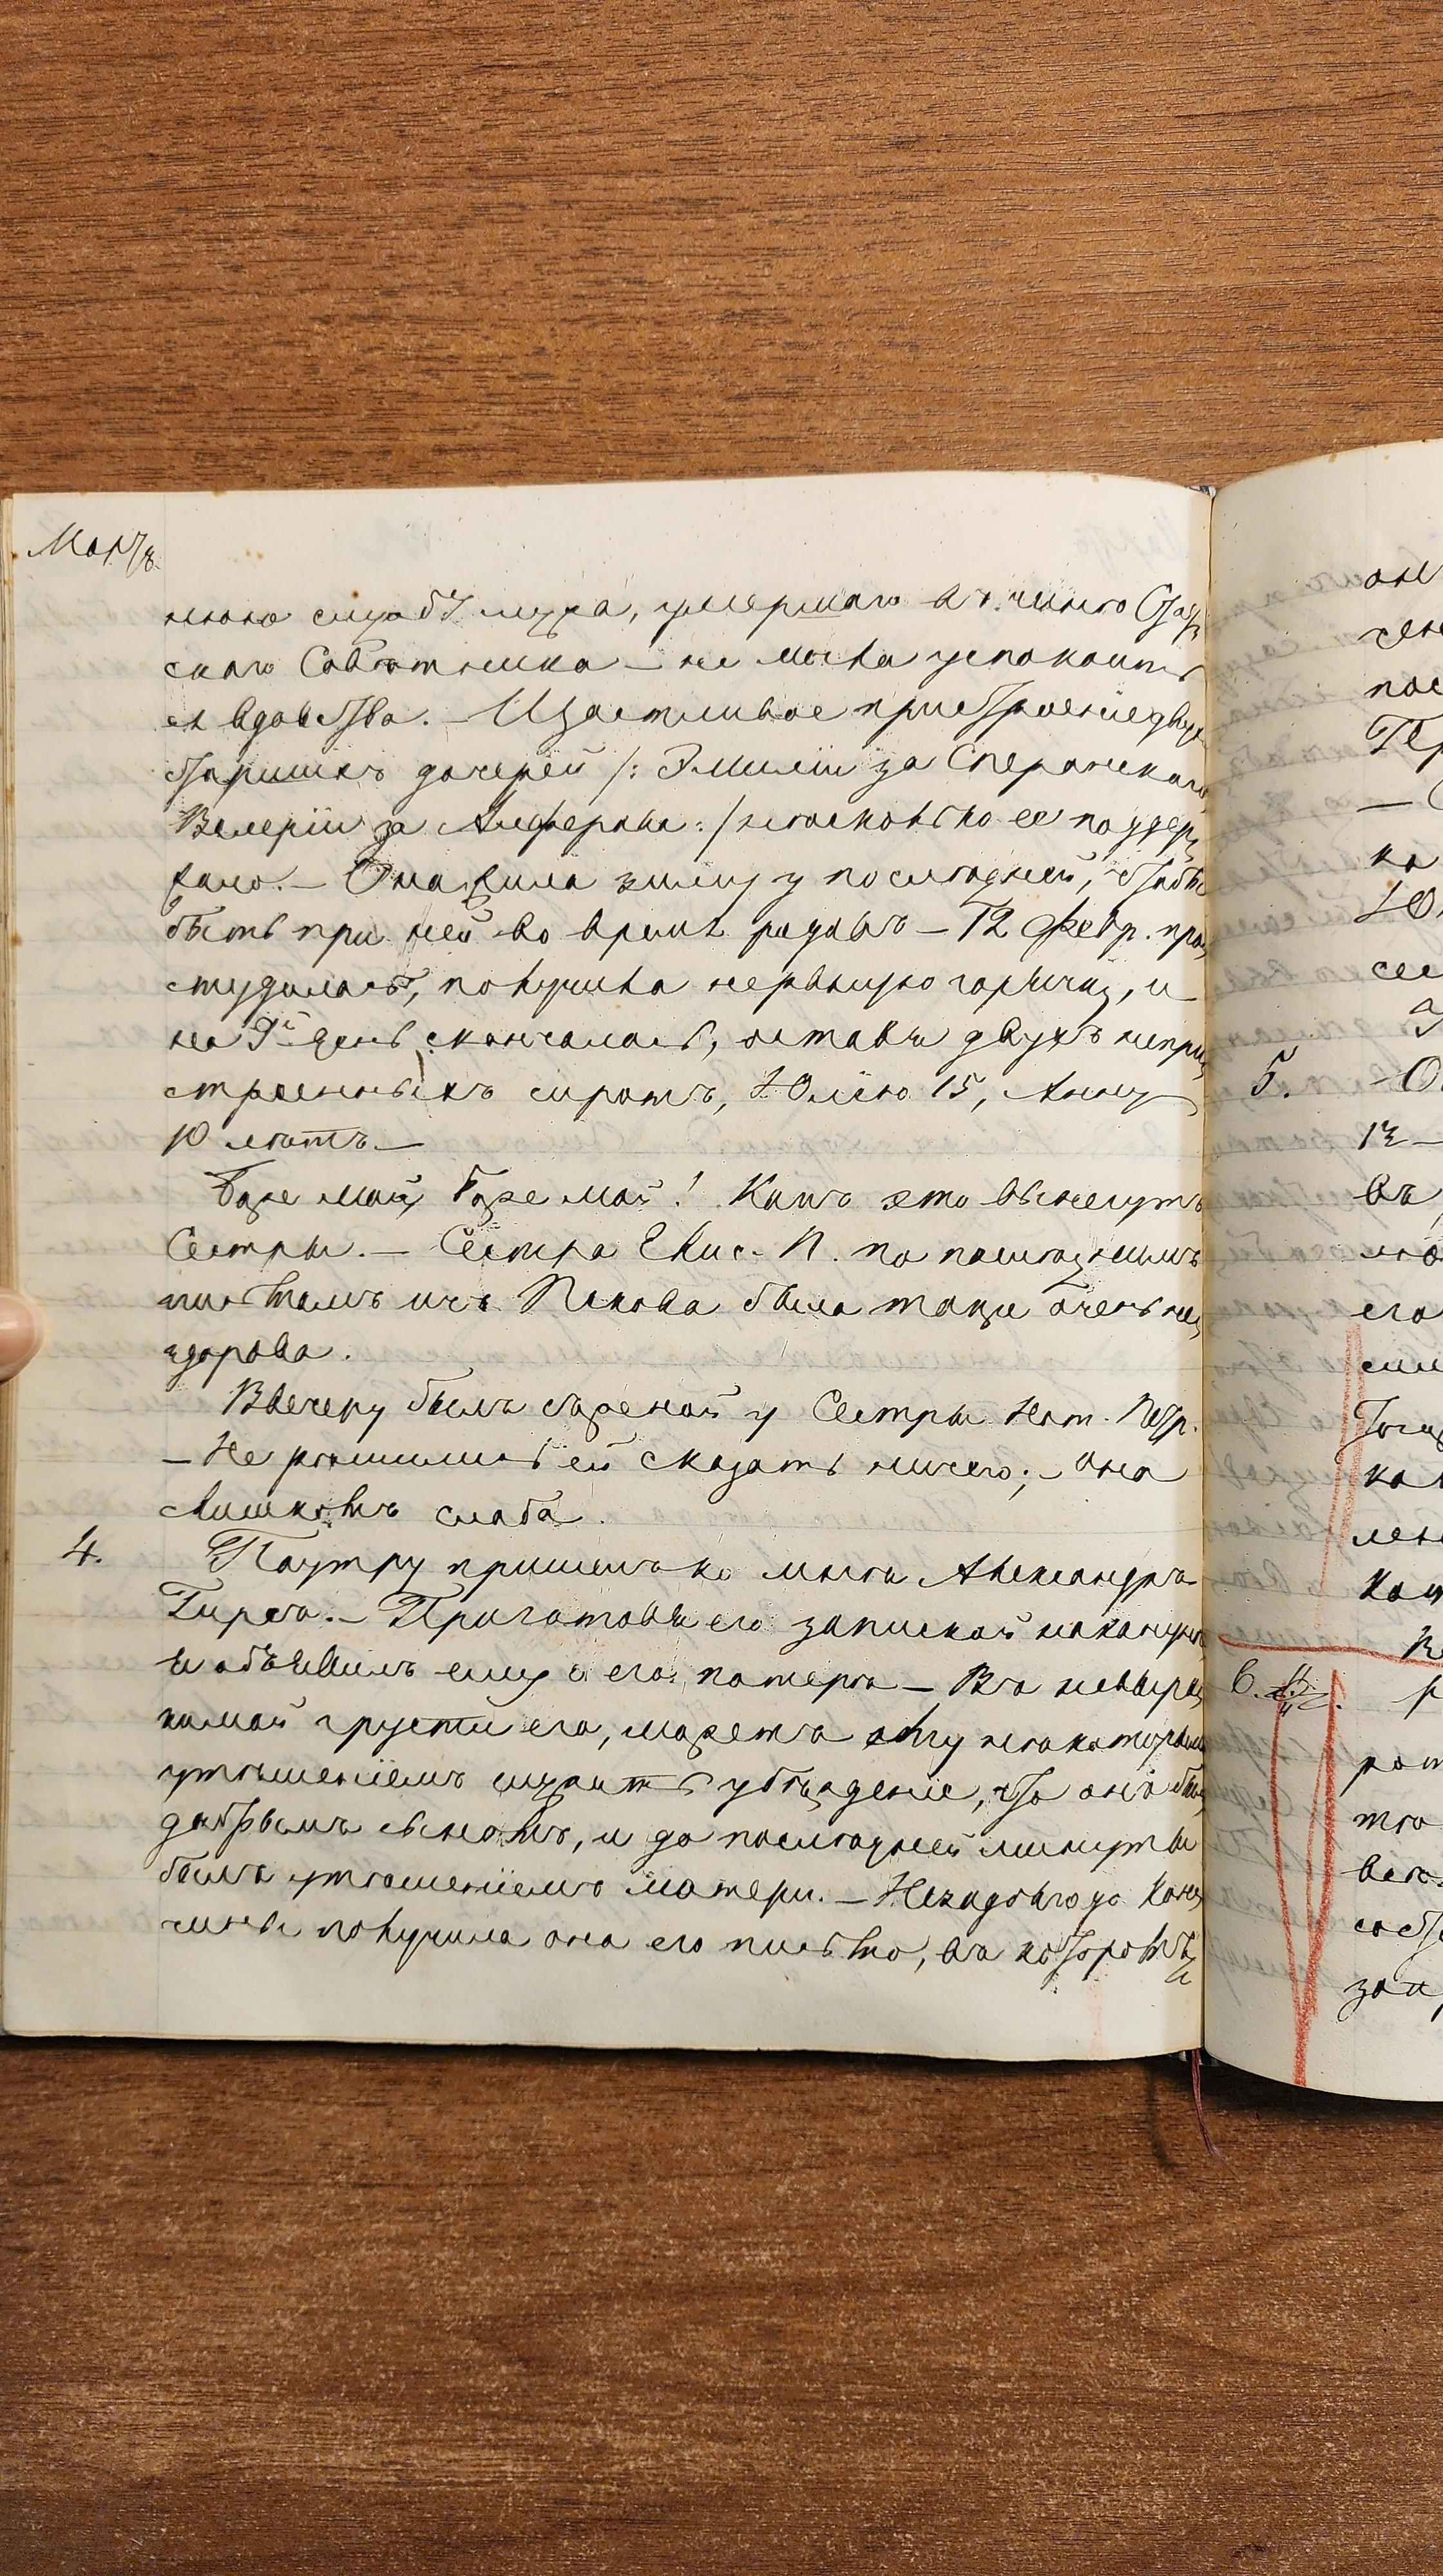 Мартъ
нюю службу мужа, умершаго въ чинѣ Статс
скаго Совѣтника – не могла успокоить
ея вдовства. – Щастливое пристроеніе двухъ
старшихъ дочерей /: Эмиліи за Сперанскаго
Валеріи за Алферова :/ нѣсколько ее поддер
жало. – Она жила зиму у послѣдней, чтобы
быть при ней во время родовъ – 12 Февр. про
студилась, получила нервную горячку, и
на 9й день скончалась, оставя двухъ непри
строенныхъ сиротъ, Юлію 15, Анну
10 лѣтъ –
Боже мой, Боже мой! Какъ это вынесутъ
Сестры. – Сестра Елис. П. по послѣднимъ
письмамъ изъ Пскова была также очень не
здорова.
Ввечеру былъ с женой у Сестры Нат. Петр.
– Не рѣшились ей сказать ничего; – она
слишкомъ слаба.
4. Поутру пришелъ ко мнѣ Александръ
Гирсъ. – Приготовя его запиской наканунѣ
я объявилъ ему о его потерѣ – Въ невыра
зимой грусти его, можетъ ему нѣкоторымъ
утѣшеніемъ служить убѣжденіе, что онъ былъ
добрымъ сыномъ, и до послѣдней минуты
былъ утѣшеніемъ матери. – Незадолго до кон
чины получила она его письмо, въ которомъ
5.
13 –
въ
его
6.